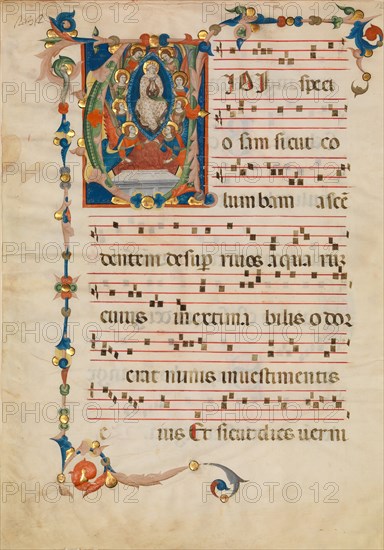 IDI speci
osam sicut co
lumbam ascē
dentem desup rivos aquarū
cuius inextima bilis odor
erat nimis in vestimentis
eius Et sicut dies verni
PHOTO12